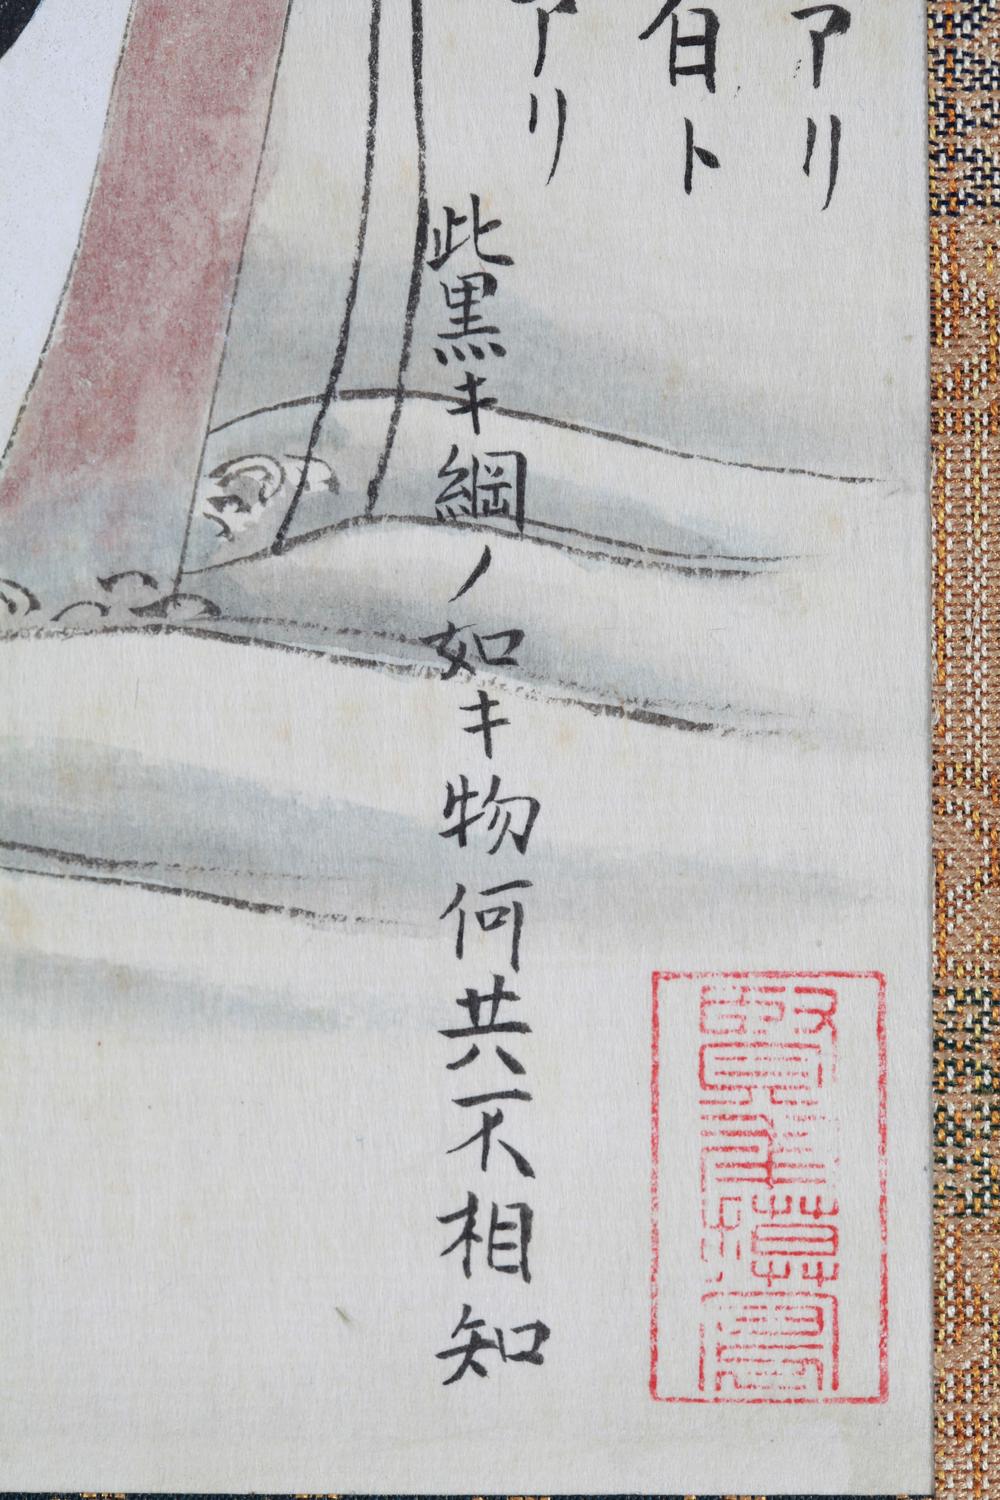 アリ
白ト
アリ
此黒キ綱ノ如キ物何共不相知